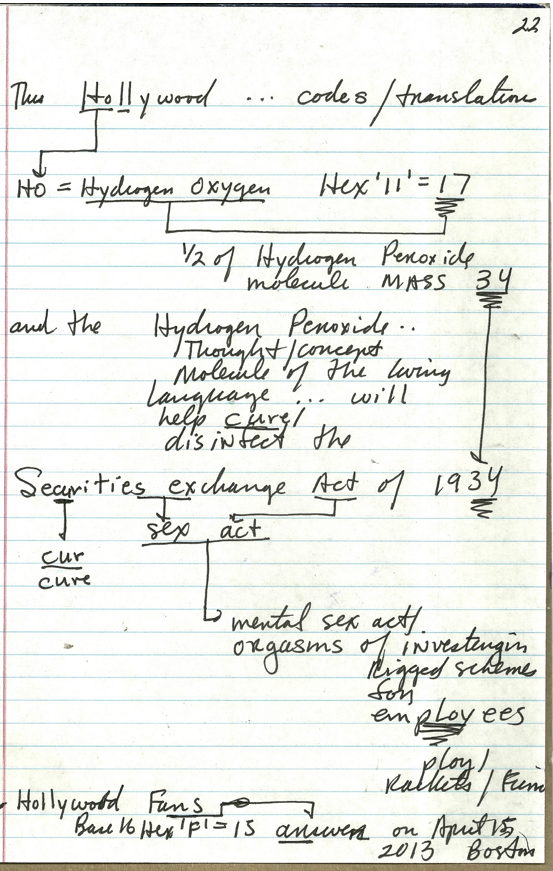 22
This Hollywood ... codes / translation
HO = Hydrogen Oxygen Hex '11' = 17
1/2 of Hydrogen Peroxide
molecule MASS 34
and the Hydrogen Peroxide..
Thought/concept
Molecule of the living
language ... will
help cure/
disinfect the
Securities exchange Act of 1934
sex act
cur
cure
mental sex act/
orgasms of
Rigged schemes
for
employees
ploy/
Rackets /
Hollywood Fans
Base 16 Hex 'F' = 15 answers on April 15,
2013 Boston